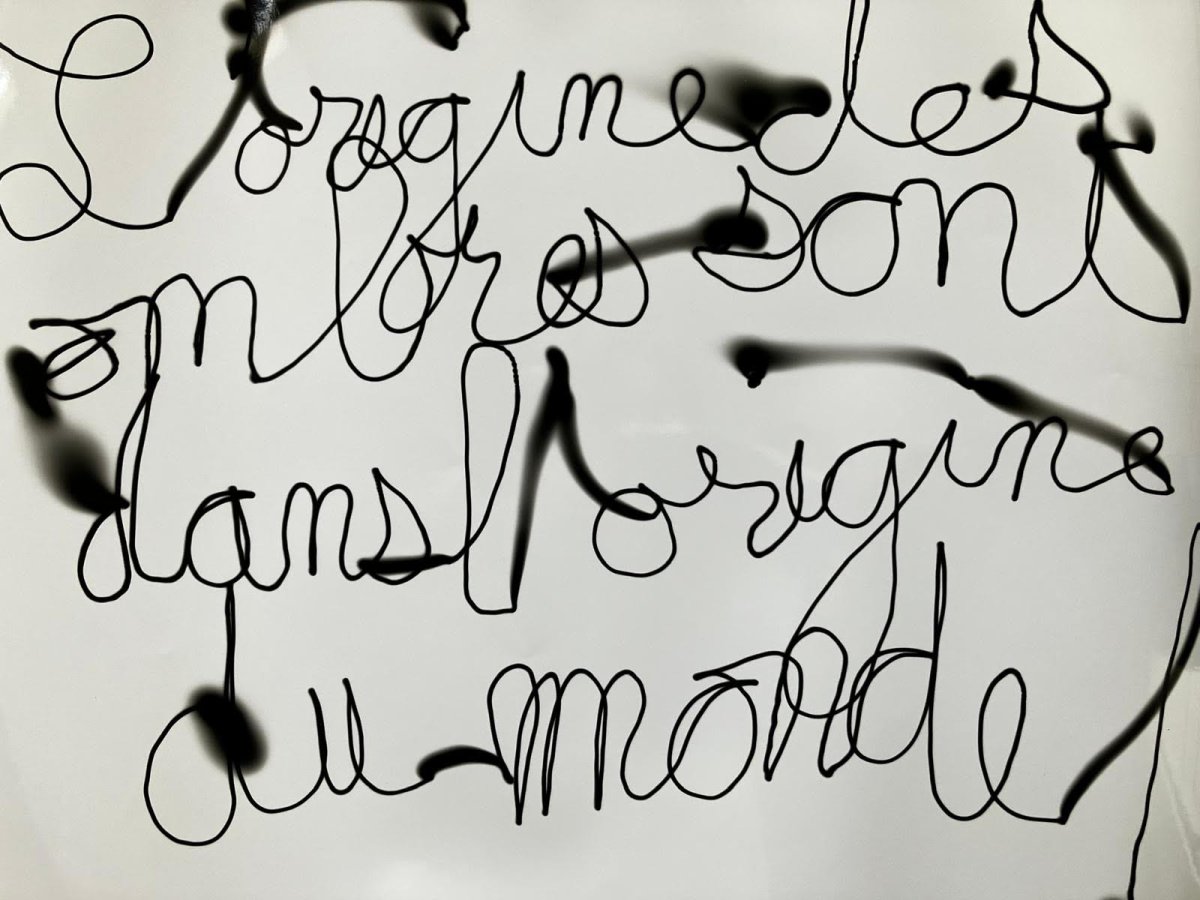 L'origine des
ombres sont
dans l'origine
du monde